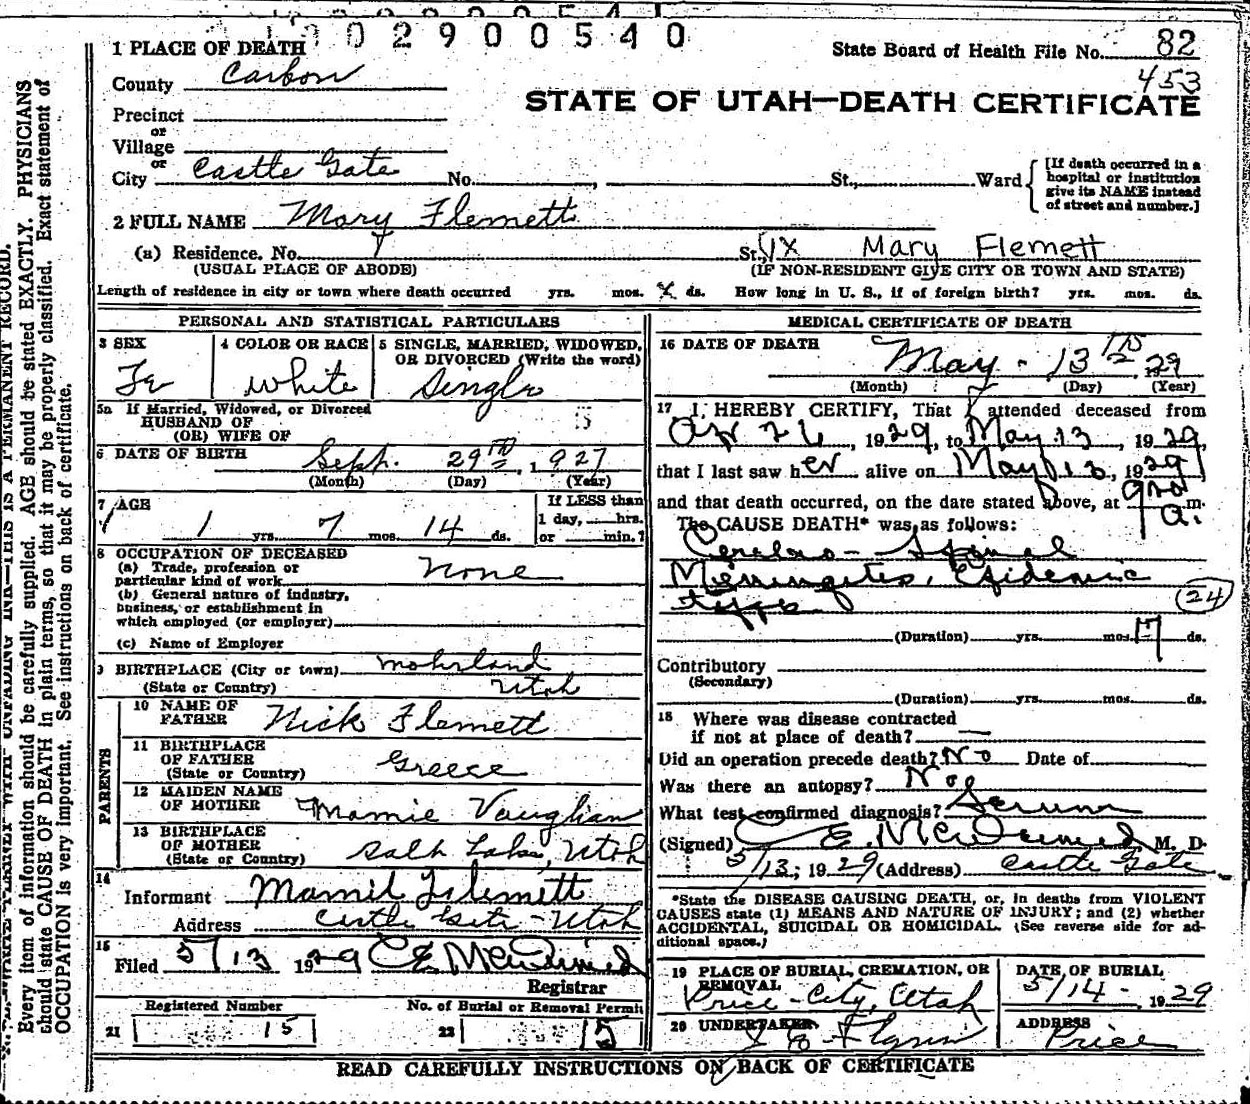 1 0 2 9 0 0 5 4 0
1 PLACE OF DEATH
State Board of Health File No. 82
County Carbon
453
STATE OF UTAH—DEATH CERTIFICATE
Precinct
or
Village
or
City Castle Gate No. , St., Ward
[If death occurred in a hospital or institution give its NAME instead of street and number.]
2 FULL NAME Mary Flemett
(a) Residence. No. St., Mary Flemett
(USUAL PLACE OF ABODE) (IF NON-RESIDENT GIVE CITY OR TOWN AND STATE)
Length of residence in city or town where death occurred yrs. mos. X ds. How long in U. S., if of foreign birth? yrs. mos. ds.
PERSONAL AND STATISTICAL PARTICULARS
3 SEX
Fe
4 COLOR OR RACE
White
5 SINGLE, MARRIED, WIDOWED, OR DIVORCED (Write the word)
Single
5a If Married, Widowed, or Divorced
HUSBAND OF
(OR) WIFE OF
6 DATE OF BIRTH Sept. 29th, 1927
(Month) (Day) (Year)
7 AGE
1 yrs. 7 mos. 14 ds.
If LESS than
1 day, hrs.
or min.?
8 OCCUPATION OF DECEASED
(a) Trade, profession or
particular kind of work None
(b) General nature of industry,
business, or establishment in
which employed (or employer)
(c) Name of Employer
9 BIRTHPLACE (City or town) Mohrland
(State or Country) Utah
PARENTS
10 NAME OF
FATHER Nick Flemett
11 BIRTHPLACE
OF FATHER
(State or Country) Greece
12 MAIDEN NAME
OF MOTHER Mamie Vaughan
13 BIRTHPLACE
OF MOTHER
(State or Country) Salt Lake, Utah
14
Informant Mamie Flemett
Address Castle Gate - Utah
15
Filed 5/13 1929 C E McDermid
Registrar
Registered Number
21 15
No. of Burial or Removal Permit
22 5
MEDICAL CERTIFICATE OF DEATH
16 DATE OF DEATH
May - 13th 1929
(Month) (Day) (Year)
17 I HEREBY CERTIFY, That I attended deceased from
Apr 26, 1929, to May 13, 1929,
that I last saw her alive on May 13, 1929
and that death occurred, on the date stated above, at a. m.
The CAUSE DEATH* was as follows:
Cerebro-Spinal
Meningitis, Epidemic
type
24
(Duration) yrs. mos. 17 ds.
Contributory
(Secondary)
(Duration) yrs. mos. ds.
18 Where was disease contracted
if not at place of death? —
Did an operation precede death? No Date of
Was there an autopsy? No
What test confirmed diagnosis? Serum
(Signed) C E. McDermid, M. D.
5/13; 1929 (Address) Castle Gate
*State the DISEASE CAUSING DEATH, or, in deaths from VIOLENT
CAUSES state (1) MEANS AND NATURE OF INJURY; and (2) whether
ACCIDENTAL, SUICIDAL OR HOMICIDAL. (See reverse side for ad-
ditional space.)
19 PLACE OF BURIAL, CREMATION, OR
REMOVAL
Price - City, Utah
DATE OF BURIAL
5/14 - 1929
20 UNDERTAKER
J E Flynn
ADDRESS
Price
READ CAREFULLY INSTRUCTIONS ON BACK OF CERTIFICATE
Every item of information should be carefully supplied. AGE should be stated EXACTLY. PHYSICIANS
should state CAUSE OF DEATH in plain terms, so that it may be properly classified. Exact statement of
OCCUPATION is very important. See instructions on back of certificate.